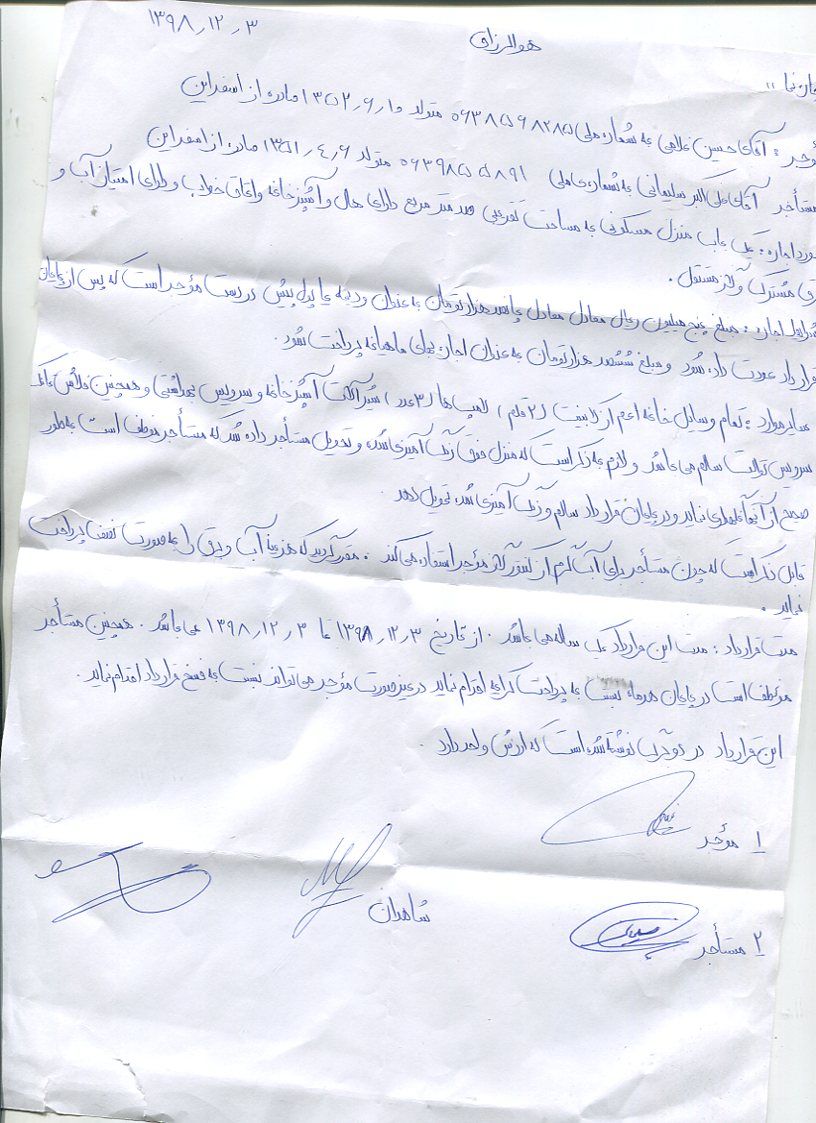 ۱۳۹۸٫۱۲٫۳
هوالرزاق
اجاره‌نما "
مؤجر : آقای حسین غلامی به شماره ملی ۰۶۳۸۵۹۸۲۸۵ متولد ۱۳۵۲٫۶٫۱۰ صادره از اسفراین
مستأجر آقای علی اکبر سلیمانی به شماره‌ی ملی ۰۶۳۹۸۵۵۸۹۱ متولد ۱۳۵۱٫۴٫۶ صادره از اسفراین
مورد اجاره : یک باب منزل مسکونی به مساحت تقریبی صد متر مربع دارای هال و آشپزخانه و اتاق خواب و دارای امتیاز آب و
برق مشترک و گاز مستقل .
شرایط اجاره : مبلغ پنج میلیون ریال معادل معادل پانصد هزار تومان به عنوان ودیعه یا پول پیش در دست مؤجر است که پس از پایان
قرارداد عودت داده شود و مبلغ ششصد هزار تومان به عنوان اجاره بهای ماهیانه پرداخت شود .
سایر موارد : تمام وسایل خانه اعم از کابینت (۲ قلم) لامپ‌ها (۳ عدد) شیرآلات آشپزخانه و سرویس بهداشتی و همچنین فلاش تانک
سرویس توالت سالم می‌باشد و لازم به ذکر است که منزل فوق رنگ آمیزی شده و تحویل مستأجر داده شد که مستأجر موظف است به طور
صحیح از آنها نگهداری نماید و در پایان قرارداد سالم و رنگ آمیزی شده تحویل دهد .
قابل ذکر است که چون مستأجر برای آب گرم از کنتور گاز مؤجر استفاده می‌کند . مقرر گردید که هزینهٔ آب و برق را به صورت نصف پرداخت
نماید .
مدت قرارداد : مدت این قرارداد یک ساله می‌باشد . از تاریخ ۱۳۹۸٫۱۲٫۳ تا ۱۳۹۸٫۱۲٫۳ می‌باشد . همچنین مستأجر
موظف است در پایان هر ماه نسبت به پرداخت کرایه اقدام نماید در غیر صورت مؤجر می‌تواند نسبت به فسخ قرارداد اقدام نماید .
این قرارداد در دو برگ نوشته شده است که ارزش واحد دارد .
۱ مؤجر
شاهدان
۲ مستأجر